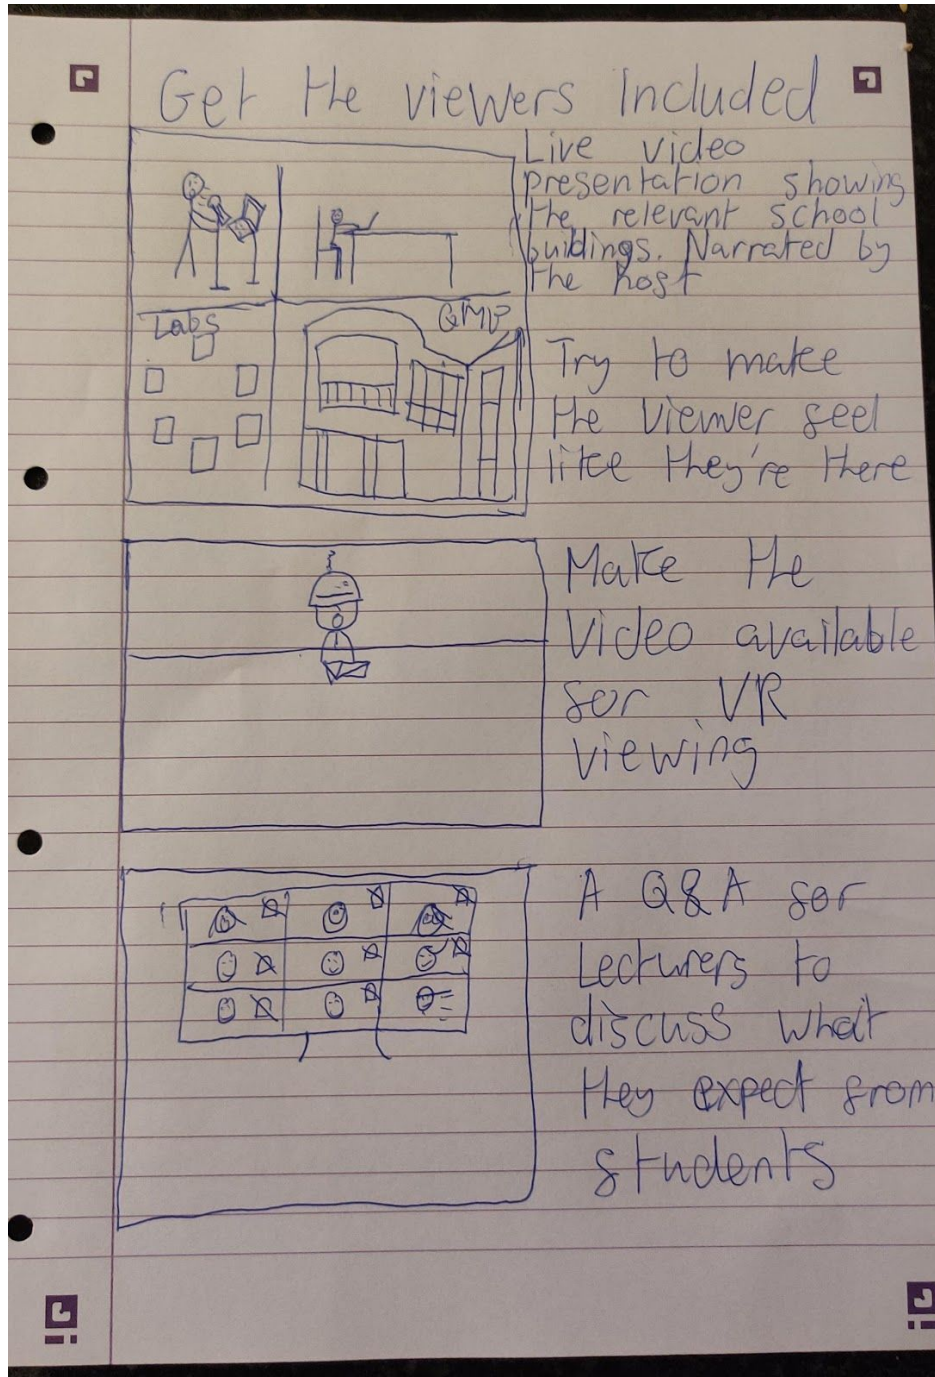 Get the viewers included
Live video
presentation showing
the relevant school
buildings. Narrated by
the host
Labs
QMB
Try to make
the viewer feel
like they're there
Make the
video available
for VR
viewing
A Q&A for
Lecturers to
discuss what
they expect from
students